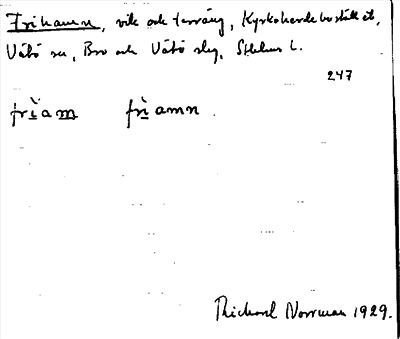 Frihamn, vik och terräng, Kyrkoherdebostället,
Vätö sn, Bro och Vätö slg, Sthlms l.
247
frìam frìamn.
Richard Norrman 1929.